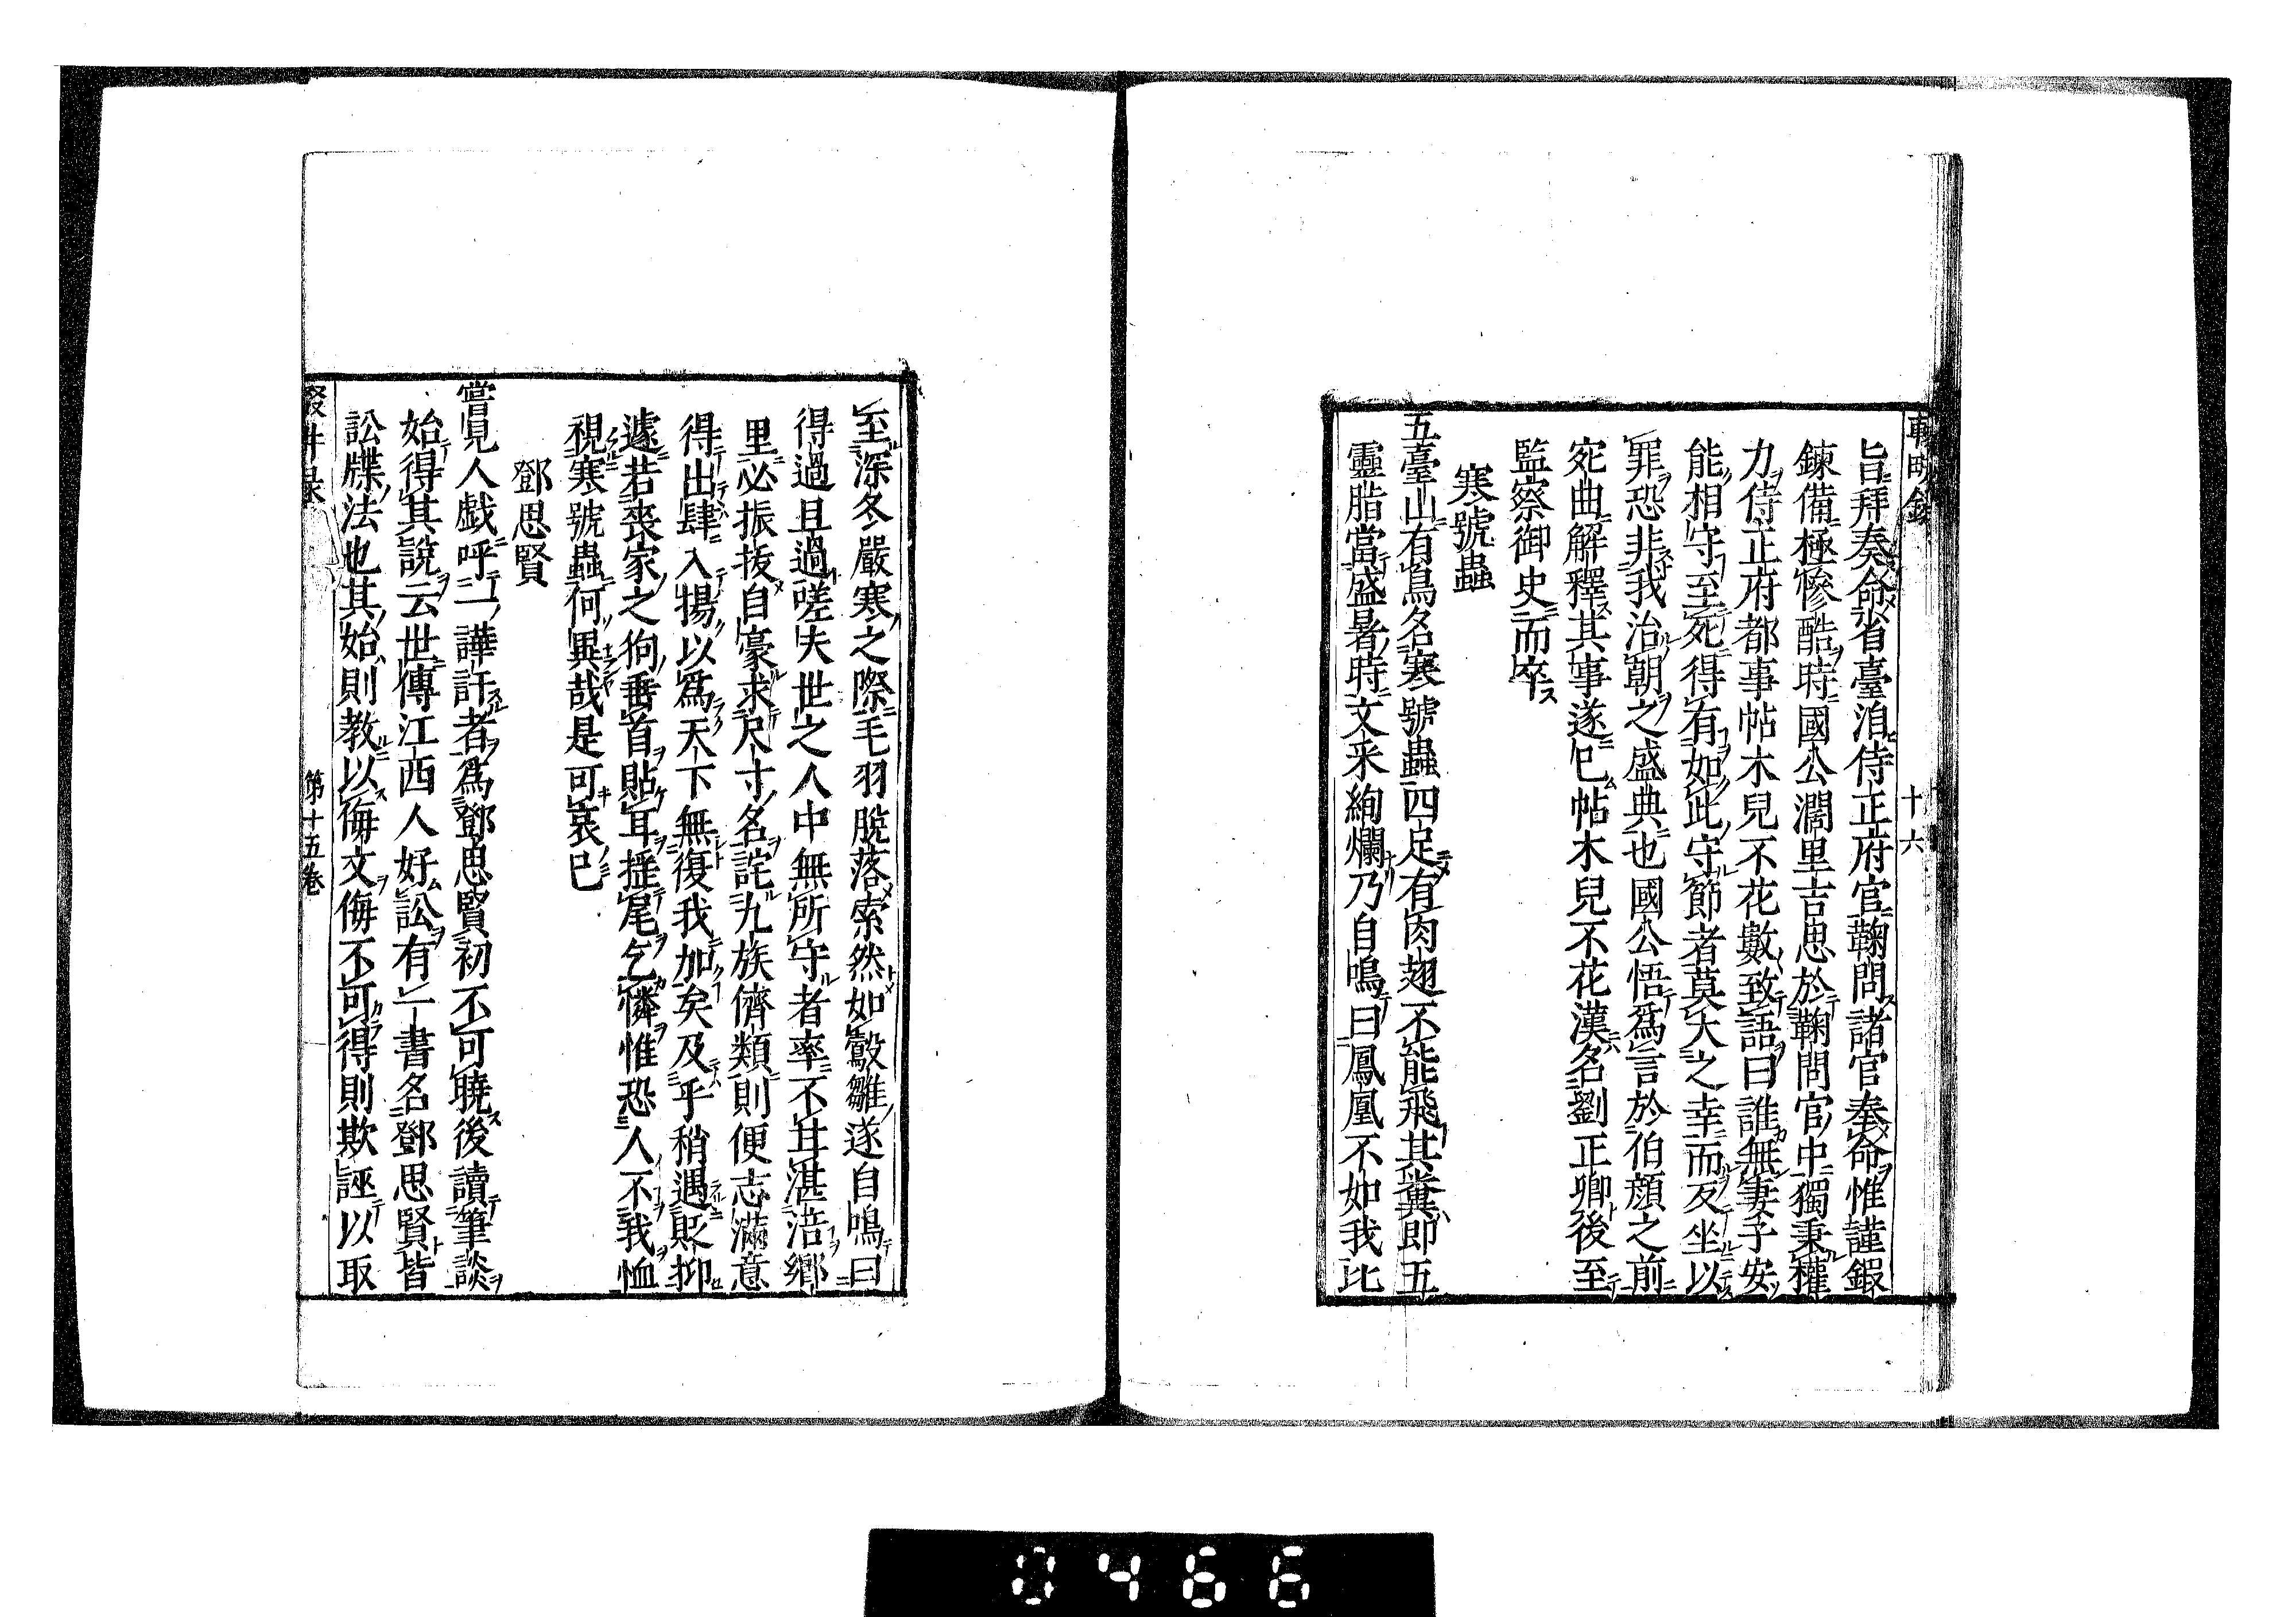 輟畊錄
十六
旨拜奏命省臺洎侍正府官鞠問諸官奉命惟謹鍜
鍊備極慘酷時國公濶里吉思於鞠問官中獨秉權
力侍正府都事帖木兒不花數致語曰誰無妻子安
能相守至死得有如此守節者莫大之幸而反坐以
罪恐非我治朝之盛典也國公悟爲言於伯顏之前
宛曲解釋其事遂已帖木兒不花漢名劉正卿後至
監察御史而卒
寒號蟲
五臺山有鳥名寒號蟲四足有肉翅不能飛其糞即五
靈脂當盛暑時文采絢爛乃自鳴曰鳳凰不如我比
至深冬嚴寒之際毛羽脫落索然如鷇雛遂自鳴曰
得過且過嗟夫世之人中無所守者率不甘湛涪鄉
里必振拔自豪求尺寸名詫九族儕類則便志滿意
得出肆入揚以爲天下無復我加矣及乎稍遇貶抑
遽若喪家之狗垂首貼耳搖尾乞憐惟恐人不我恤
視寒號蟲何異哉是可哀已
鄧思賢
嘗見人戲呼一譁訐者爲鄧思賢初不可曉後讀筆談
始得其說云世傳江西人好訟有一書名鄧思賢皆
訟牒法也其始則教以侮文侮不可得則欺誣以取
輟畊录
第十五卷
0466